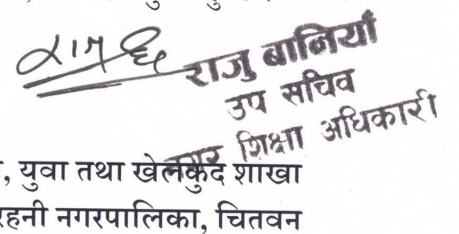 राजु बानियाँ
उप सचिव
नगर शिक्षा अधिकारी
, युवा तथा खेलकुद शाखा
रहनी नगरपालिका, चितवन